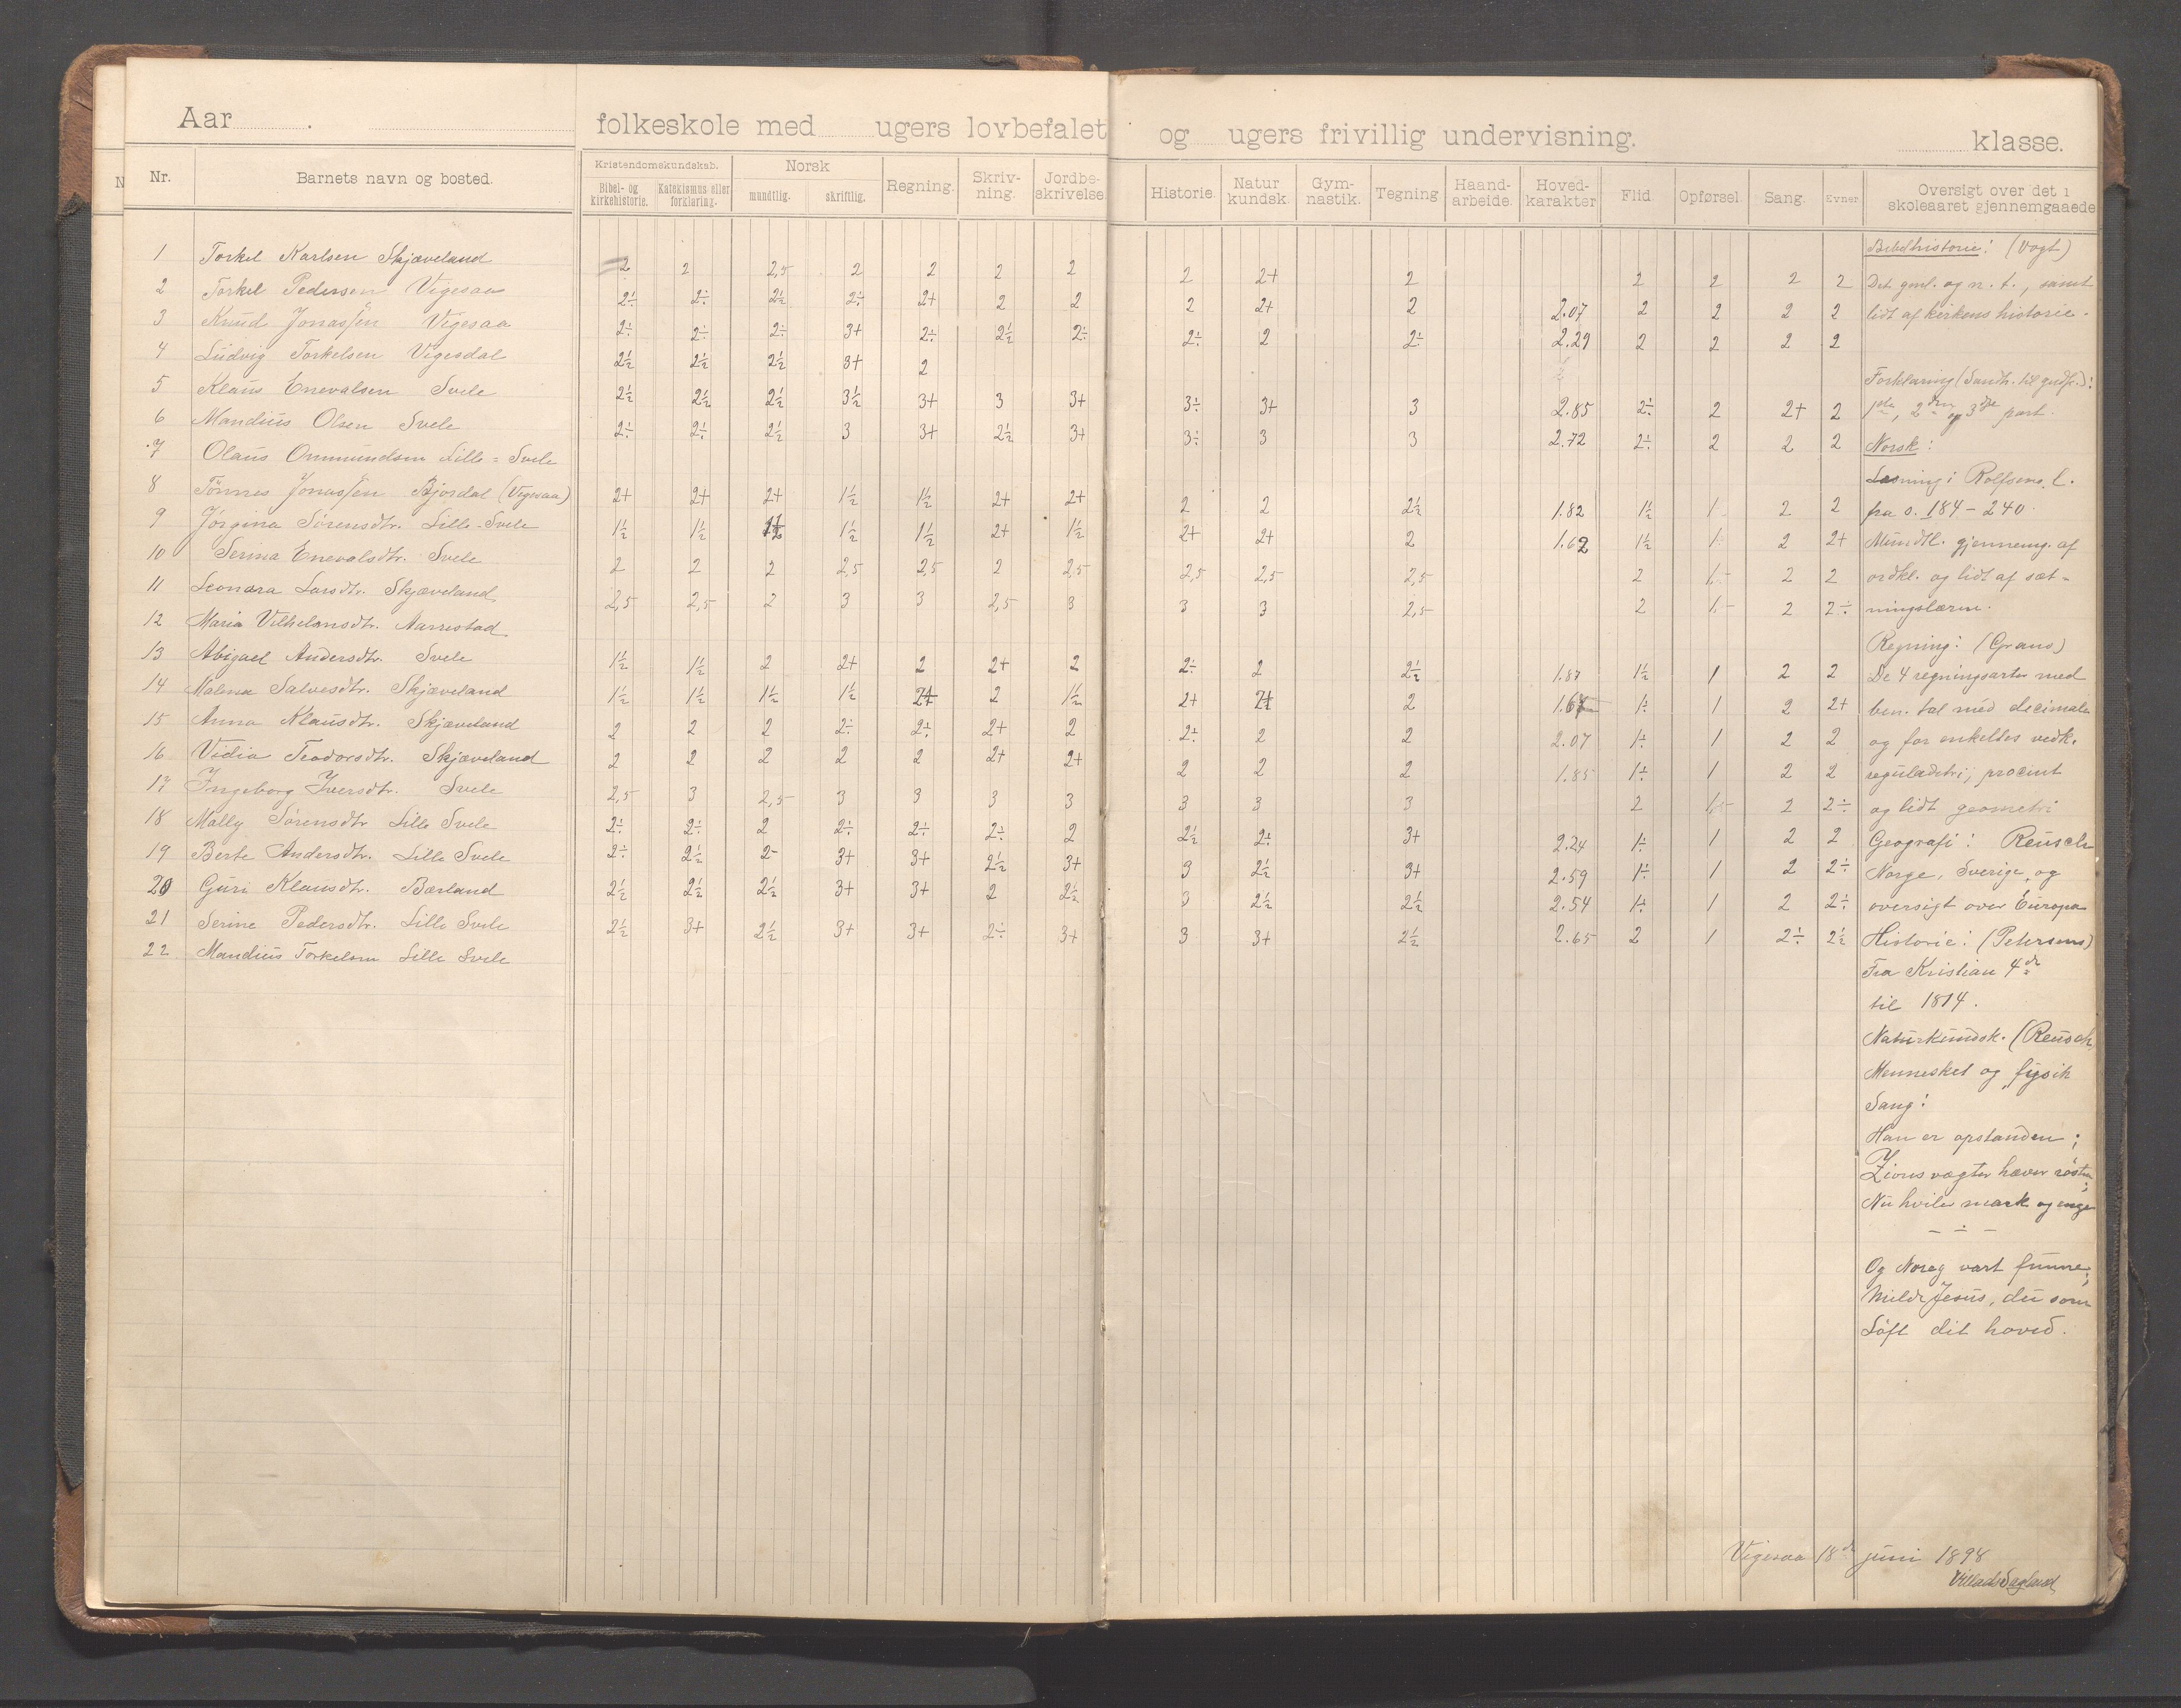 Aar . folkeskole med ugers lovbefalet og ugers frivillig undervisning. klasse.
Nr. Barnets navn og bosted. Kristendomskundskab. Bibel- og kirkehistorie. Katekismus eller forklaring. Norsk mundtlig. skriftlig. Regning. Skriv-ning. Jordbe-skrivelse. Historie. Natur kundsk. Gym-nastik. Tegning Haand-arbeide. Hoved-karakter Flid. Opførsel. Sang. Evner Oversigt over det i skoleaaret gjennemgaaede
1 Torkel Karlsen Skjæveland 2 2 2,5 2 2 2 2 2 2+ 2 2 2 2 2
2 Torkel Pedersen Vigesaa 2÷ 2÷ 2½ 2÷ 2+ 2 2 2 2+ 2 2.07 2 2 2 2
3 Knud Jonassen Vigesaa 2÷ 2÷ 2÷ 3+ 2÷ 2½ 2÷ 2÷ 2 2÷ 2.29 2 2 2 2
4 Ludvig Torkelsen Vigesdal 2½ 2½ 2½ 3+ 2
5 Klaus Enevalsen Svele 2½ 2½ 2½ 3½ 3+ 3 3+ 3÷ 3+ 3 2.85 2÷ 2 2+ 2
6 Mandius Olsen Svele 2÷ 2÷ 2½ 3 3+ 2½ 3+ 3÷ 3 3 2.72 2÷ 2 2 2
7 Olaus Ommundsen Lille=Svele
8 Tönnes Jonassen Bjordal (Vigesaa) 2+ 2+ 2+ 1½ 1½ 2+ 2+ 2 2 2½ 1.82 1½ 1 2 2
9 Jörgina Sörensdtr. Lille-Svele 1½ 1½ 1½ 1½ 1½ 2+ 1½ 2+ 2+ 2 1.62 1½ 1 2 2+
10 Serina Enevalsdtr. Svele 2 2 2 2,5 2,5 2 2,5 2,5 2,5 2,5 2 1,5 2 2
11 Leonara Larsdtr. Skjæveland 2,5 2,5 2 3 3 2,5 3 3 3 2,5 2 1,5 2 2÷
12 Maria Vilhelmsdtr. Aarrestad
13 Abigael Andersdtr. Svele 1½ 1½ 2 2+ 2 2+ 2 2÷ 2 2½ 1.87 1½ 1 2 2
14 Malena Salvesdtr. Skjæveland 1½ 1½ 1½ 1½ 2+ 2 1½ 2+ 2+ 2 1÷ 1 2 2+
15 Anna Klausdtr. Skjæveland 2 2 2 2÷ 2÷ 2+ 2 2÷ 2 2 2.07 1÷ 1 2 2
16 Vidia Teodorsdtr. Skjæveland 2 2 2 2 2 2+ 2+ 2 2 2 1.85 1÷ 1 2 2
17 Ingeborg Iversdtr. Svele 2,5 3 2,5 3 3 3 3 3 3 3 2 1,5 2 2÷
18 Mally Sörensdtr Lille Svele 2÷ 2÷ 2 2÷ 2÷ 2÷ 2 2½ 2÷ 3+ 2.24 1÷ 1 2 2
19 Berte Andersdtr. Lille Svele 2÷ 2½ 2- 3+ 3+ 2½ 3+ 3 2½ 3+ 2.59 1÷ 1 2 2÷
20 Guri Klausdtr. Bærland 2½ 2½ 2½ 3+ 3+ 2 2½ 3 2½ 2½ 2.54 1÷ 1 2 2÷
21 Serine Pedersdtr. Lille Svele 2½ 3+ 2½ 3+ 3+ 2÷ 3+ 3 3+ 2½ 2.65 2 1 2÷ 2½
22 Mandius Torkelsen Lille Svele
Bibelhistorie: (Vogt)
Det gml. og n. t., samt
lidt af kirkens historie.
Forklaring (Sandh. til gudf.):
1ste, 2den og 3dje part.
Norsk:
Læsning i Rolfsens l.
fra s. 184-240.
Mundtl. gjennemg. af
ordkl. og lidt af sæt-
ningslæren.
Regning: (Grans)
De 4 regningsarter med
ben. tal med decimale
og for enkeltes vedk.
reguladetri, procint
og lidt geometri
Geografi: Reusch
Norge, Sverige, og
oversigt over Europa
Historie: (Petersens)
Fra Kristian 4de
til 1814.
Naturkundsk. (Reusch
Mennesket og fysik
Sang:
Han er opstanden;
Zions vægter hæver røsten;
Nu hviler mark og enge
- ÷ -
Og Noreg vart funne;
Milde Jesus, du som
Löft dit hoved.
Vigesaa 18de juni 1898
Villads Sagland
N